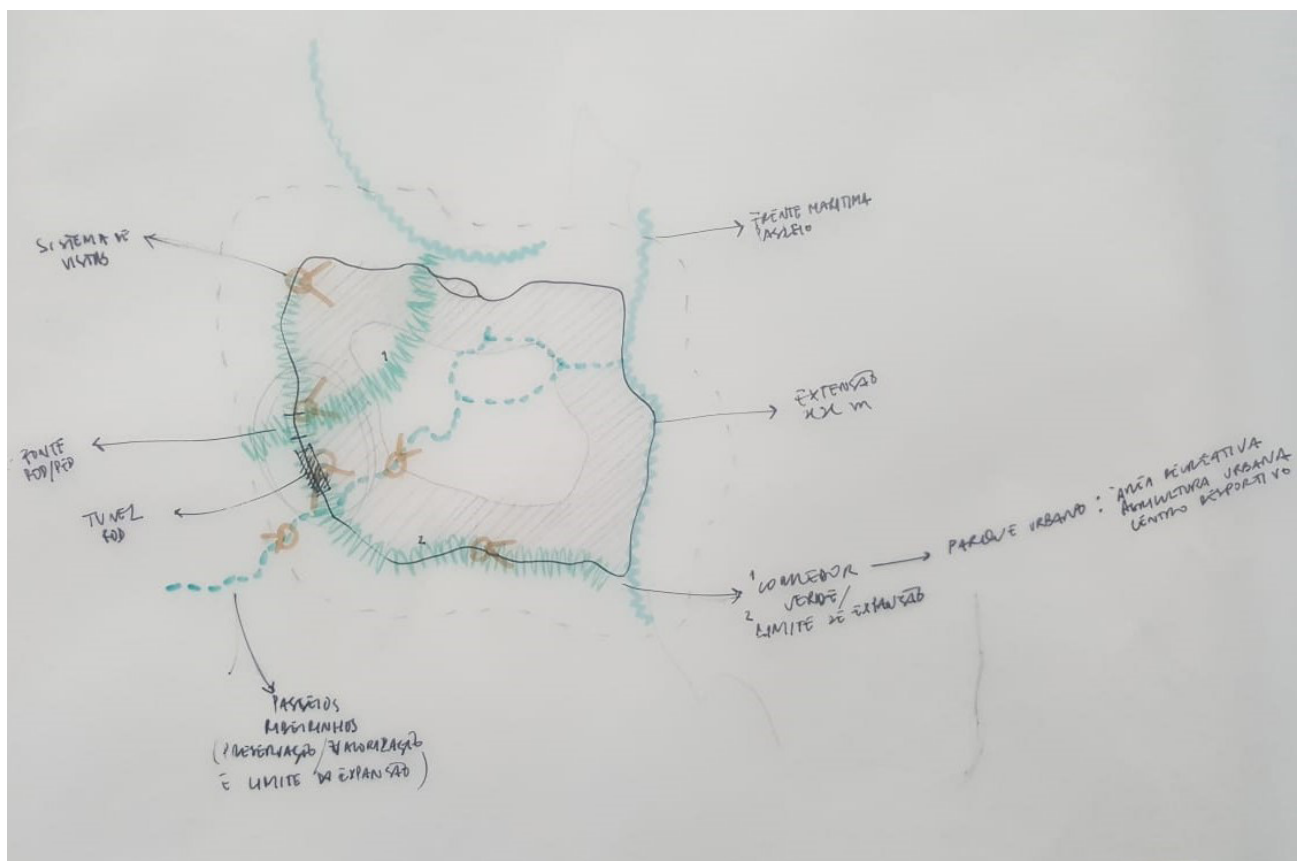 SISTEMA DE
VISTAS
FRENTE MARITIMA
PASSEIO
EXTENSÃO
XX m
PONTE
ROD/PED
TUNEL
ROD
1
2
1 CORREDOR
VERDE/
2 LIMITE DE EXPANSÃO
PARQUE URBANO: ÁREA RECREATIVA
AGRICULTURA URBANA
CENTRO DESPORTIVO
PASSEIOS
RIBEIRINHOS
(PRESERVAÇÃO/VALORIZAÇÃO
E LIMITE DA EXPANSÃO)